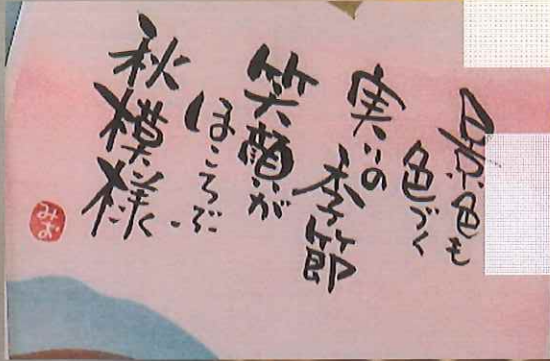 景色も
色づく
実りの
季節
笑顔が
ほころぶ
秋模様
みお